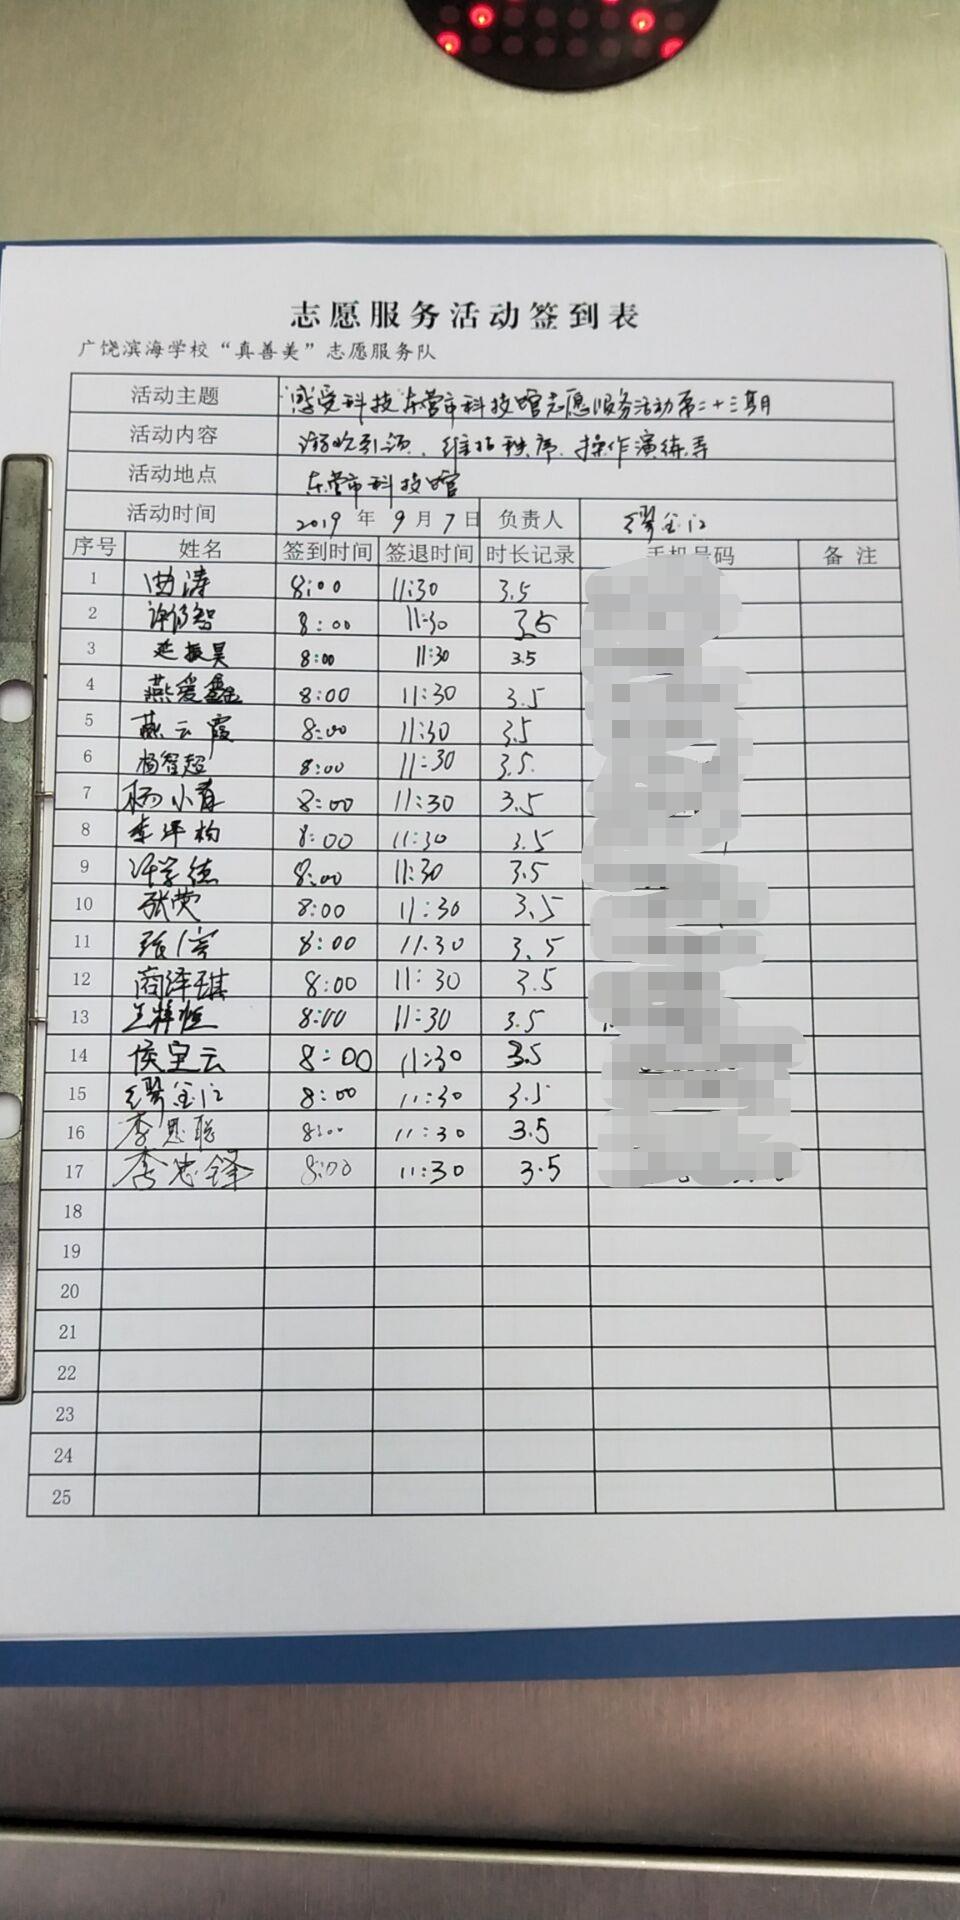 志愿服务活动签到表
广饶滨海学校“真善美”志愿服务队
活动主题 感受科技东营市科技馆志愿服务活动第二十三期
活动内容 游戏引领、维护秩序、操作演练等
活动地点 东营市科技馆
活动时间 2019年9月7日 负责人 缪金江
序号 姓名 签到时间 签退时间 时长记录 手机号码 备注
1 曲涛 8:00 11:30 3.5
2 8:00 11:30 3.5
3 延振昊 8:00 11:30 3.5
4 燕爱鑫 8:00 11:30 3.5
5 燕云霞 8:00 11:30 3.5
6 杨智超 8:00 11:30 3.5
7 杨小春 8:00 11:30 3.5
8 李坪柏 8:00 11:30 3.5
9 许学德 8:00 11:30 3.5
10 张荧 8:00 11:30 3.5
11 8:00 11.30 3.5
12 商泽琪 8:00 11:30 3.5
13 8:00 11:30 3.5
14 侯宝云 8:00 11:30 3.5
15 缪金江 8:00 11:30 3.5
16 李思聪 8:00 11:30 3.5
17 李忠铎 8:00 11:30 3.5
18
19
20
21
22
23
24
25